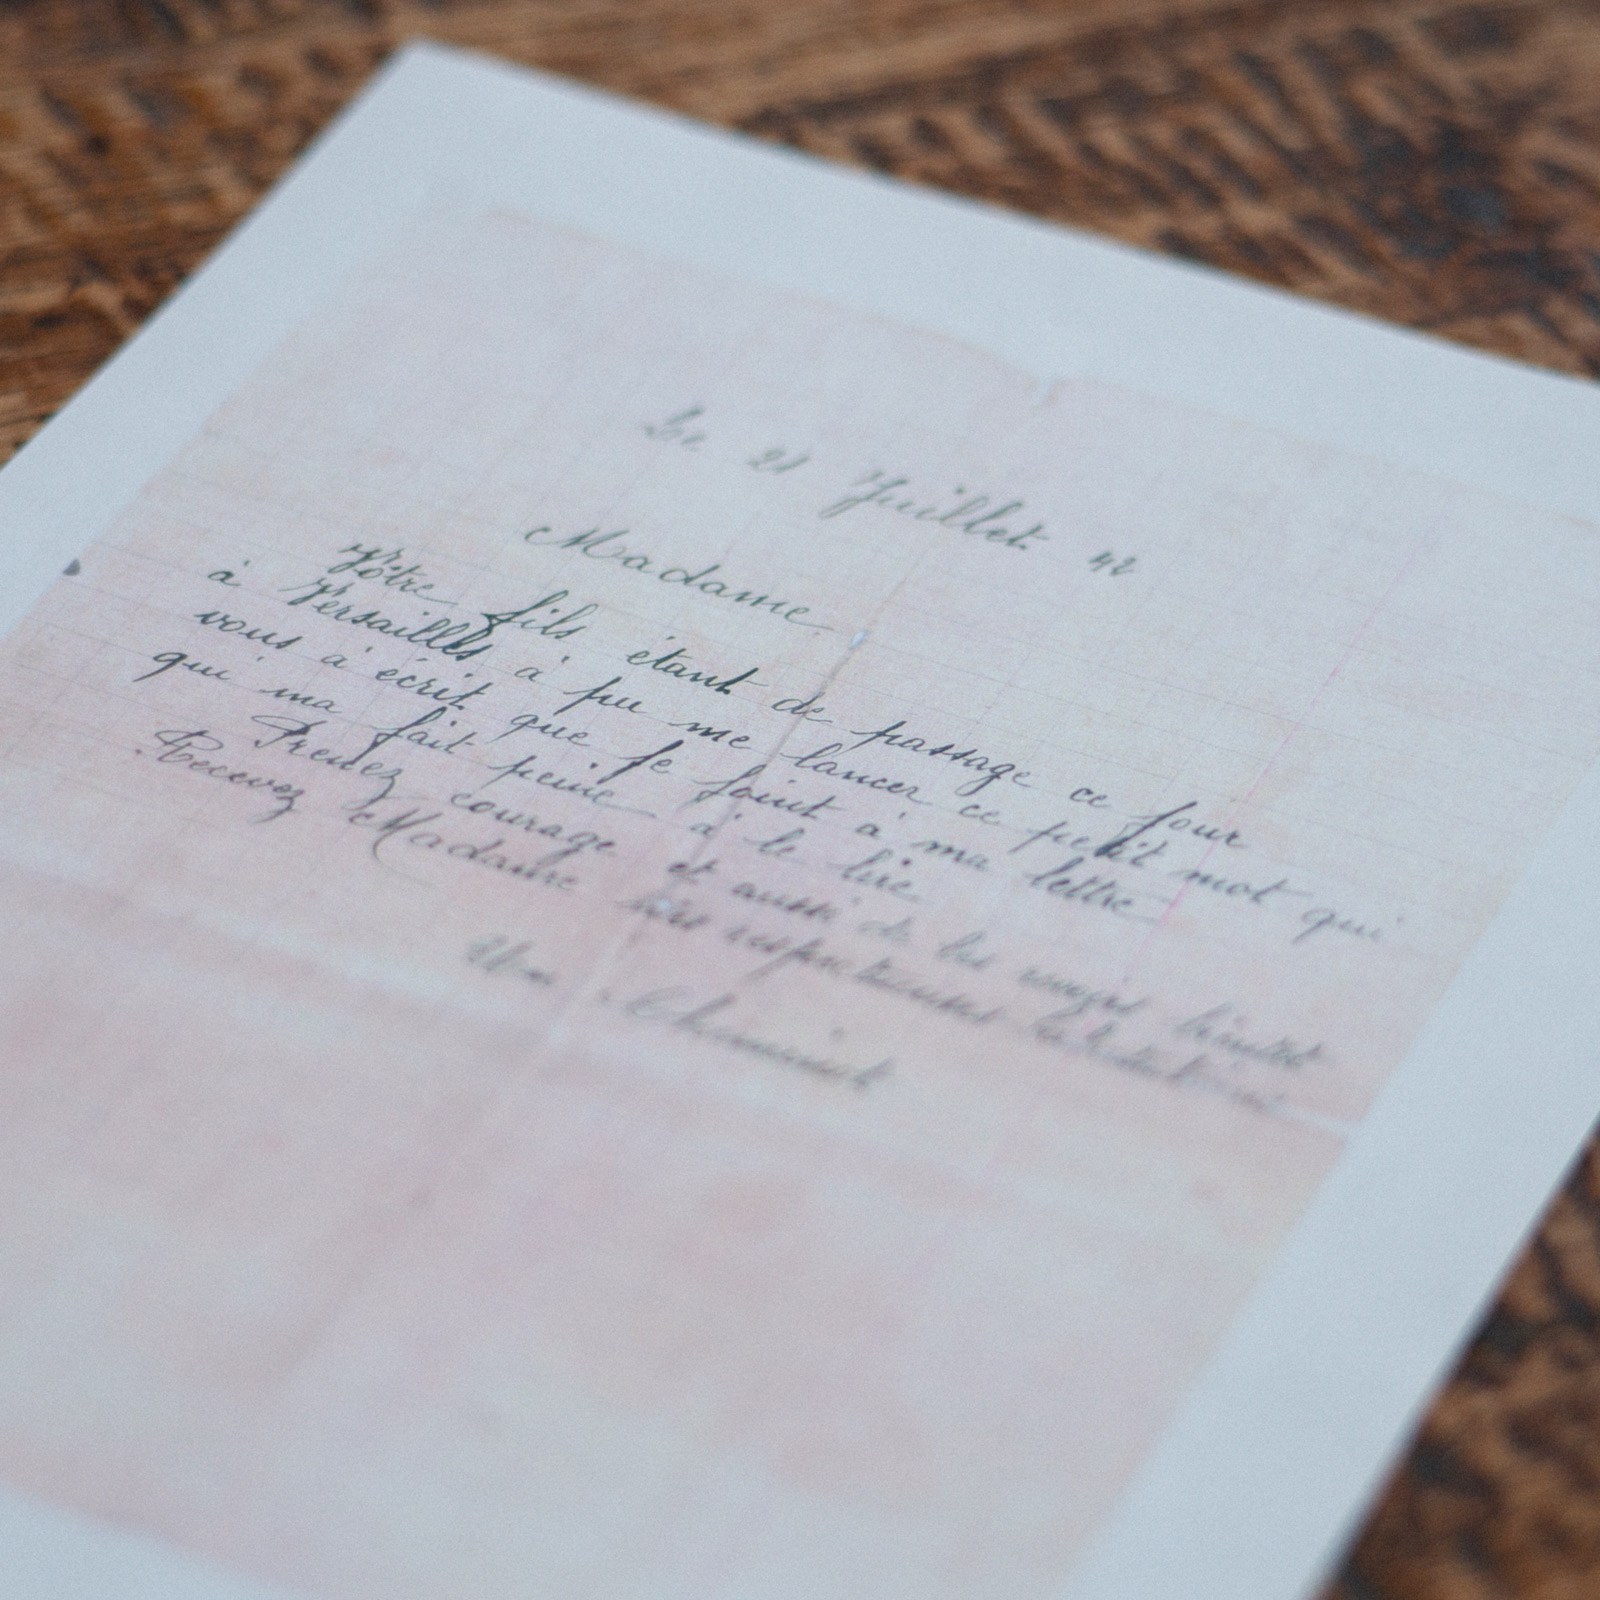 Le 21 Juillet 42
Madame
Vôtre fils étant de passage ce jour
à Versailles à pu me lancer ce petit mot qui
vous à écrit que je joint à ma lettre
qui ma fait peine à le lire
Prenez courage et aussi de les revoir bientôt
Recevez Madame mes respectueuses